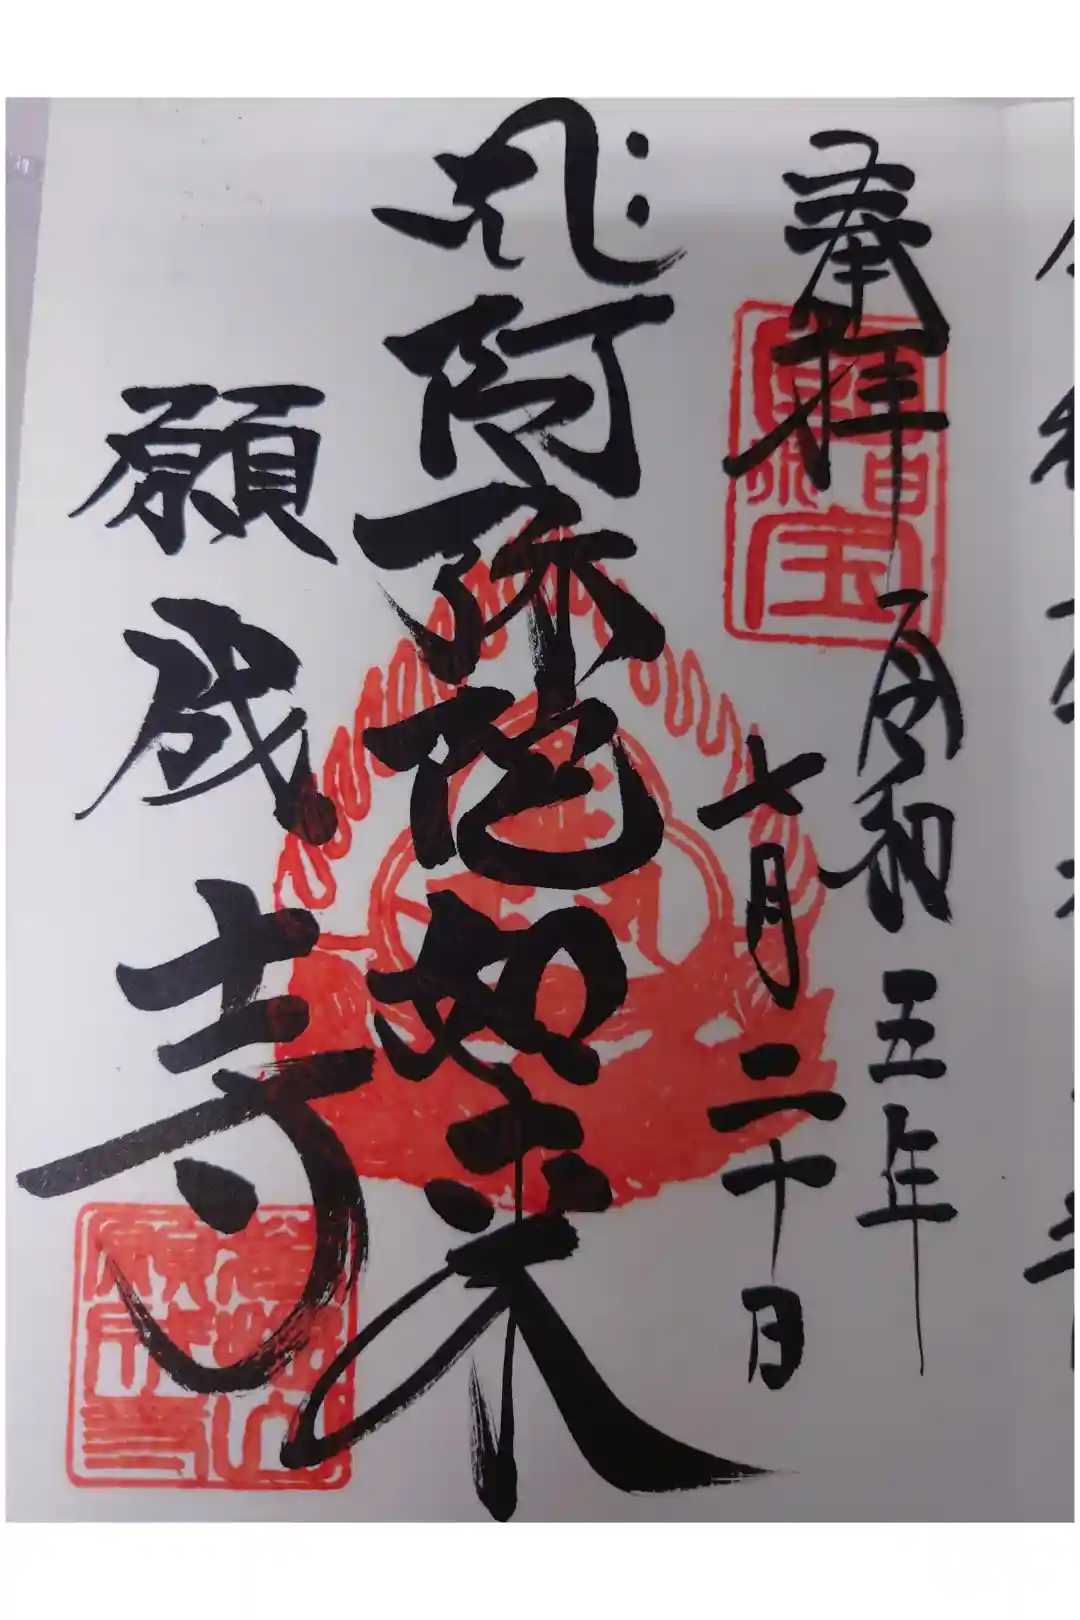 奉拝
令和五年
七月二十日
𑖮𑖿𑖨𑖱𑖾
阿弥陀如来
願成寺